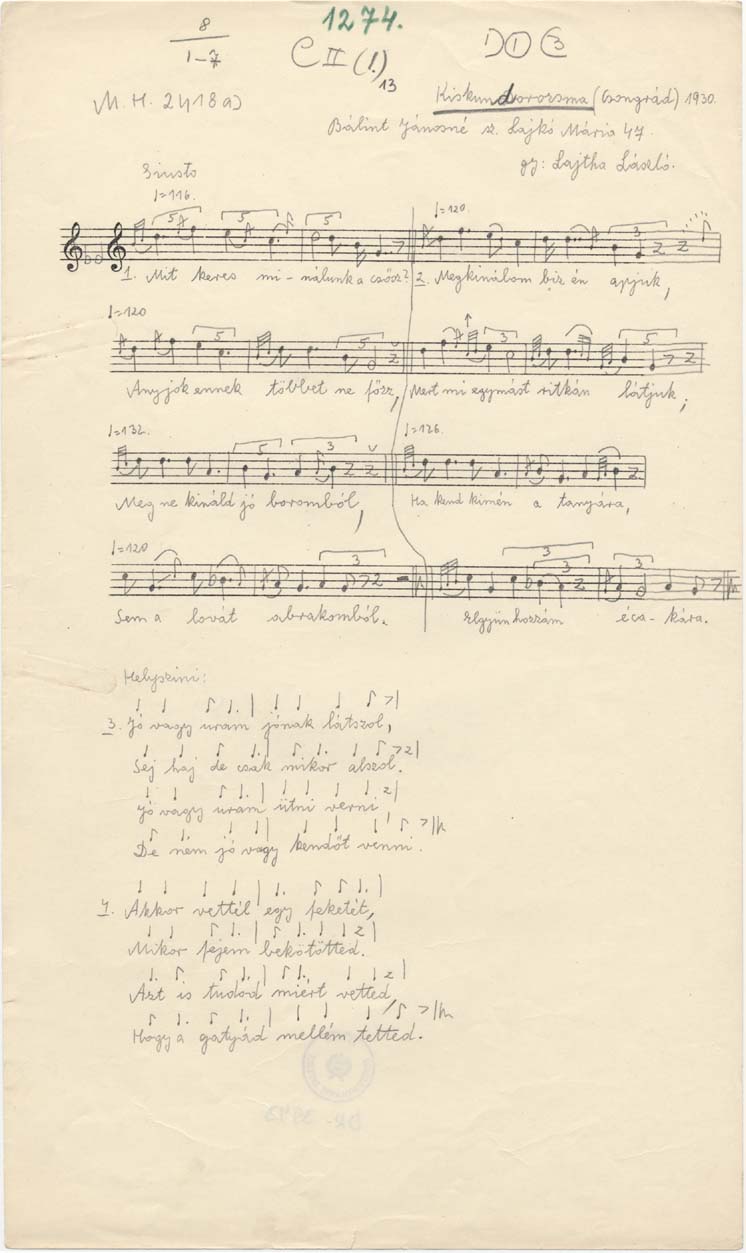 1274.
8
1-7
C II (1.)
13
D I C 3
M. H. 2418a)
Kiskundorozsma (Csongrád) 1930.
Bálint Jánosné sz. Lajkó Mária 47.
gy: Lajtha László.
Giusto
♩=116.
♩=120.
1. Mit keres mi-nálunk a csősz? 2. Megkinálom biz én apjuk,
♩=120
Anyjok ennek többet ne főzz, Mert mi egymást ritkán látjuk;
♩=132.
♩=126.
Meg ne kináld jó boromból, Ha kend kimén a tanyára,
♩=120
Sem a lovát abrakomból. Elgyün hozzám éca-kára.
Helyszini:
3. Jó vagy uram jónak látszol,
Sej haj de csak mikor alszol.
Jó vagy uram ütni verni
De ném jó vagy kendőt venni.
4. Akkor vettél egy feketét,
Mikor fejem bekötötted.
Azt is tudod miért vetted
Hogy a gatyád mellém tetted.